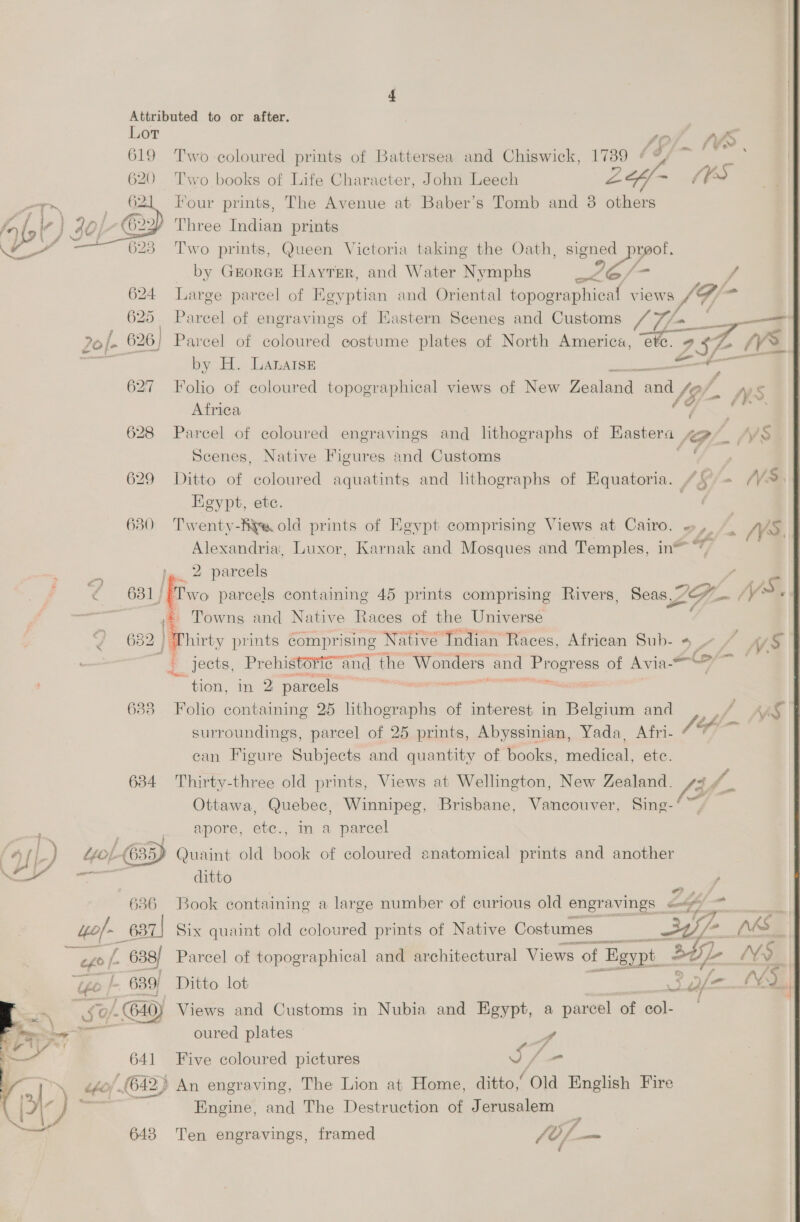 4
Attributed to or after.
Lot
619 Two coloured prints of Battersea and Chiswick, 1739
620 Two books of Life Character, John Leech
621 Four prints, The Avenue at Baber's Tomb and 3 others
30/- 622 Three Indian prints
623 Two prints, Queen Victoria taking the Oath, signed proof.
by George Hayter, and Water Nymphs 26/-
624 Large parcel of Egyptian and Oriental topographical views 19/-
625 Parcel of engravings of Eastern Scenes and Customs 17/-
20/- 626 Parcel of coloured costume plates of North America, etc.
by H. Lalaise
627 Folio of coloured topographical views of New Zealand and
Africa
628 Parcel of coloured engravings and lithographs of Eastera
Scenes, Native Figures and Customs
629 Ditto of coloured aquatints and lithographs of Equatoria.
Egypt, etc.
630 Twenty-five old prints of Egypt comprising Views at Cairo.
Alexandria, Luxor, Karnak and Mosques and Temples, in
2 parcels
631 Two parcels containing 45 prints comprising Rivers, Seas,
Towns and Native Races of the Universe
632 Thirty prints comprising Native Indian Races, African Sub-
jects, Prehistoric and the Wonders and Progress of Avia-
tion, in 2 parcels
633 Folio containing 25 lithographs of interest in Belgium and
surroundings, parcel of 25 prints, Abyssinian, Yada, Afri-
can Figure Subjects and quantity of books, medical, etc.
634 Thirty-three old prints, Views at Wellington, New Zealand.
Ottawa, Quebec, Winnipeg, Brisbane, Vancouver, Sing-
apore, etc., in a parcel
40/- 635 Quaint old book of coloured anatomical prints and another
ditto
636 Book containing a large number of curious old engravings
40/- 637 Six quaint old coloured prints of Native Costumes
40/- 638 Parcel of topographical and architectural Views of Egypt
40/- 639 Ditto lot
50/- 640 Views and Customs in Nubia and Egypt, a parcel of col-
oured plates
641 Five coloured pictures 5/-
40/- 642 An engraving, The Lion at Home, ditto, Old English Fire
Engine, and The Destruction of Jerusalem
643 Ten engravings, framed 10/-